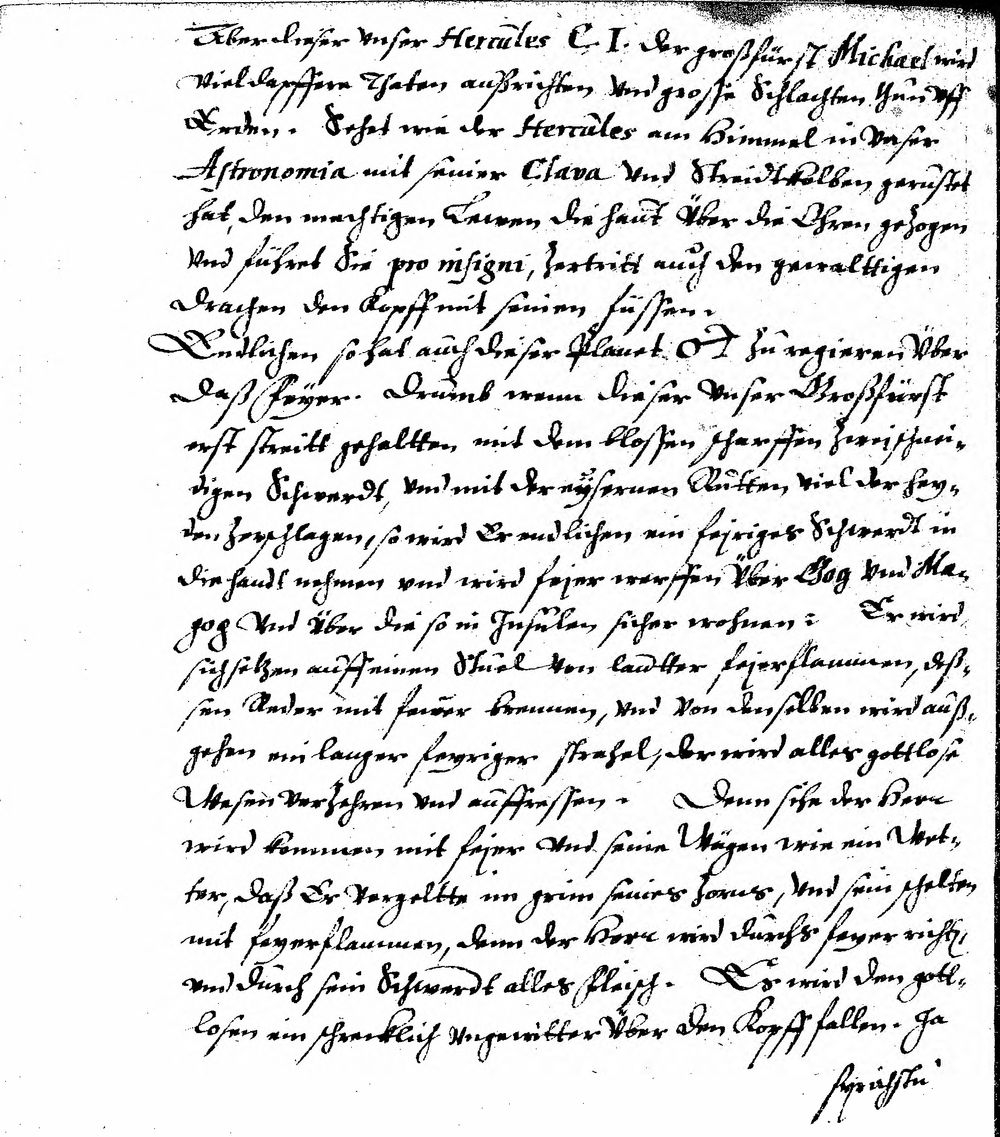 Aber dieser vnser Hercules C. I. der großfürst Michael wird
viel dapffere Thaten außrichten vnd grosse Schlachten thun vff
Erden. Sehet wie der Hercules am Himmel in vnser
Astronomia mit seiner Clava vnd Streidtkolben gerustet
hat, den machtigen Lewen die haut über die Ohren gezogen
vnd führet Sie pro insigni, zertritt auch den gewalttigen
Drachen den Kopff mit seinen füssen.
Endlichen so hat auch dieser Planet ♂ zu regieren über
daß feyer. Drumb wenn dieser vnser Großfürst
erst streitt gehaltten mit dem blossen scharffen zweischnei-
digen Schwerdt, vnd mit der eysernen Rutten viel der hey-
den zerschlagen, so wird Er endlichen ein fejriges Schwerdt in
die handt nehmen vnd wird fejer werffen über Gog vnd Ma-
gog vnd über die so in Insulen sicher wohnen: Er wird
sich setzen auff einen Stuel von lautter fejerflammen, deß-
sen Reder mit fewer brennen, vnd von denselben wird auß-
gehen ein langer feyriger strahel, der wird alles gottlose
Wesen verzehren vnd auffressen. Denn sihe der Herr
wird kommen mit fejer vnd seine Wägen wie ein Wet-
ter, daß Er vergeltte im grim seines Zorns, vnd sein schelten
mit feyerflammen, denn der Herr wird durchs feyer richt.
vnd durch sein Schwerdt alles fleisch. Es wird den gott-
losen ein schrecklich vngewitter über den Kopff fallen. Ja
sprichstu